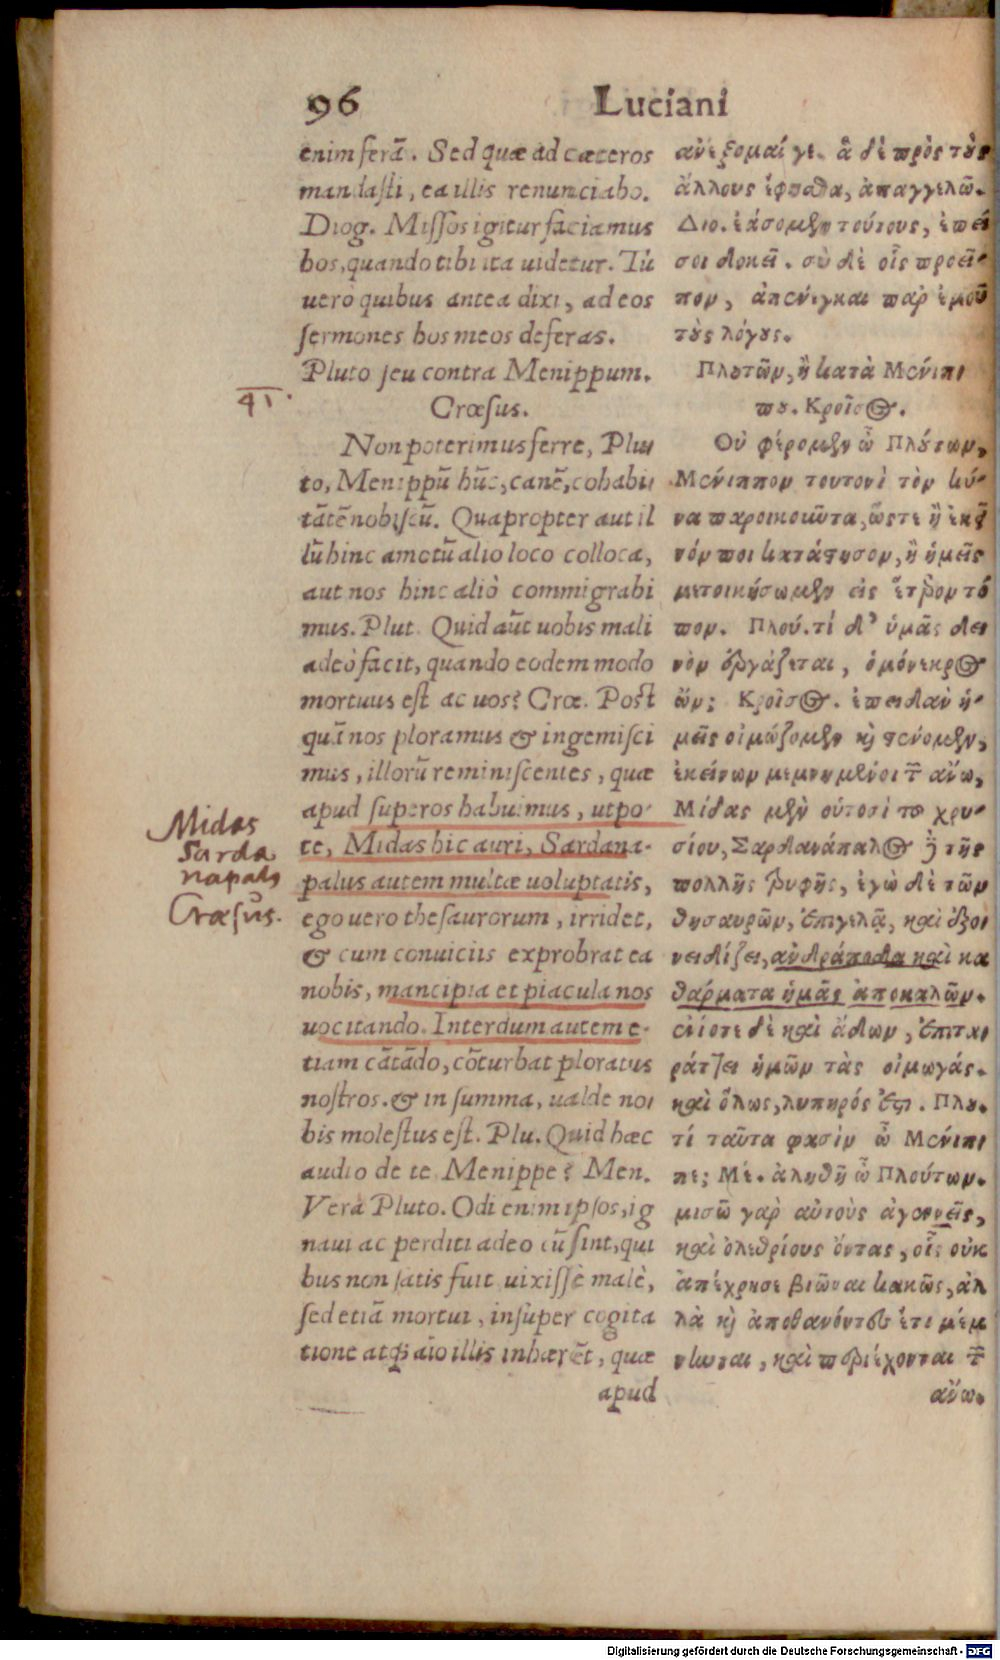 96 Luciani
enim ferā. Sed quæ ad cæteros
mandasti, ea illis renunciabo.
Diog. Missos igitur faciamus
hos, quando tibi ita uidetur. Tu
uero quibus antea dixi, ad eos
sermones hos meos deferas.
Pluto seu contra Menippum.
41.
Crœsus.
Non poterimus ferre, Plu
to, Menippū hūc, canē, cohabi
tātē nobiscū. Quapropter aut il
lū hinc amotū alio loco colloca,
aut nos hinc aliò commigrabi
mus. Plut. Quid aūt uobis mali
adeò facit, quando eodem modo
mortuus est ac uos? Crœ. Post
quā nos ploramus & ingemisci
mus, illorū reminiscentes, quæ
apud superos habuimus, utpo-
te, Midas hic auri, Sardana-
palus autem multæ uoluptatis,
ego uero thesaurorum, irridet,
& cum conuiciis exprobrat ea
nobis, mancipia et piacula nos
uocitando. Interdum autem e-
tiam cātādo, cōturbat ploratus
nostros. & in summa, ualde no
bis molestus est. Plu. Quid hæc
audio de te Menippe? Men.
Vera Pluto. Odi enim ipsos, ig
naui ac perditi adeo cū sint, qui
bus non satis fuit uixisse malè,
sed etiā mortui, insuper cogita
tione atq; aīo illis inhærēt, quæ
apud
Midas
Sarda
napals
Crœsus.
ἀνέξομαί γε. ἃ δὲ πρὸς τοὺς
ἄλλους ἔφησθα, ἀπαγγελῶ.
Διο. ἐάσομεν τούτους, ἐπεί
σοι δοκεῖ. σὺ δὲ οἷς προεῖ-
πον, ἀπένεγκαι παρ ἐμοῦ
τοὺς λόγους.
Πλούτων, ἢ κατὰ Μενίπ
που. Κροῖσος.
Οὐ φέρομεν ὦ Πλούτων,
Μένιππον τουτονὶ τὸν κύ-
να παροικοῦντα, ὥστε ἢ ἐκεῖ
νόν ποι κατάστησον, ἢ ἡμεῖς
μετοικήσωμεν εἰς ἕτερον τό
πον. Πλού. τί δ' ὑμᾶς δει
νὸν ἐργάζεται, ὁμόνεκρος
ὤν; Κροῖσος. ἐπειδὰν ἡ-
μεῖς οἰμώζομεν καὶ στένομεν,
ἐκείνων μεμνημένοι τῶν ἄνω,
Μίδας μὲν οὑτοσὶ τοῦ χρυ-
σίου, Σαρδανάπαλος δὲ τῆς
πολλῆς τρυφῆς, ἐγὼ δὲ τῶν
θησαυρῶν, ἐπιγελᾷ, καὶ ἐξο
νειδίζει, ἀνδράποδα καὶ κα
θάρματα ἡμᾶς ἀποκαλῶν.
ἐνίοτε δὲ καὶ ᾄδων, ἐπιτα
ράττει ἡμῶν τὰς οἰμωγάς.
καὶ ὅλως, λυπηρός ἐστι. Πλου.
τί ταῦτα φασὶν ὦ Μένιπ
πε; Μέ. ἀληθῆ ὦ Πλούτων.
μισῶ γὰρ αὐτοὺς ἀγεννεῖς,
καὶ ὀλεθρίους ὄντας, οἷς οὐκ
ἀπέχρησε βιῶναι κακῶς, ἀλ
λὰ καὶ ἀποθανόντες ἔτι μέμ
νηνται, καὶ περιέχονται τῶν
ἄνω.
Digitalisierung gefördert durch die Deutsche Forschungsgemeinschaft - DFG